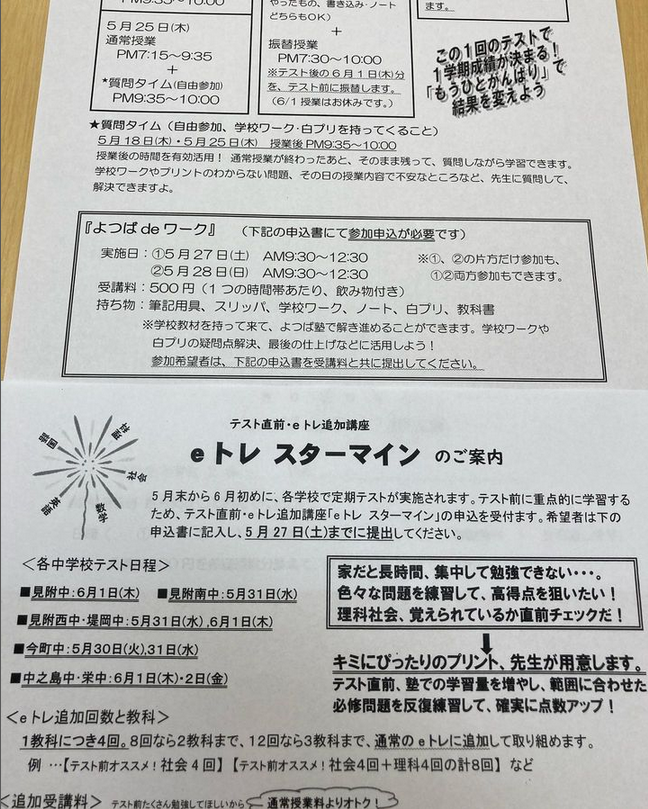 PM9:35～10:00
やったもの、書き込み・ノート
どちらもOK）
ます。
5月25日(木)
通常授業
PM7:15～9:35
＋
★質問タイム(自由参加)
PM9:35～10:00
＋
振替授業
PM7:30～10:00
※テスト後の6月1日(木)分
を、テスト前に振替します。
(6/1授業はお休みです。)
この1回のテストで
1学期成績が決まる！
「もうひとがんばり」で
結果を変えよう
★質問タイム（自由参加、学校ワーク・白プリを持ってくること）
5月18日(木)・5月25日(木)　授業後PM9:35～10:00
授業後の時間を有効活用！ 通常授業が終わったあと、そのまま残って、質問しながら学習できます。
学校ワークやプリントのわからない問題、その日の授業内容で不安なところなど、先生に質問して、
解決できますよ。
『よつばdeワーク』　（下記の申込書にて参加申込が必要です）
実施日：①5月27日(土)　AM9:30～12:30　※①、②の片方だけ参加も、
②5月28日(日)　AM9:30～12:30　①②両方参加もできます。
受講料：500円（1つの時間帯あたり、飲み物付き）
持ち物：筆記用具、スリッパ、学校ワーク、ノート、白プリ、教科書
※学校教材を持って来て、よつば塾で解き進めることができます。学校ワークや
白プリの疑問点解決、最後の仕上げなどに活用しよう！
参加希望者は、下記の申込書を受講料と共に提出してください。
国語
理科
社会
英語
数学
テスト直前・eトレ追加講座
eトレ スターマイン のご案内
5月末から6月初めに、各学校で定期テストが実施されます。テスト前に重点的に学習する
ため、テスト直前・eトレ追加講座「eトレ スターマイン」の申込を受付ます。希望者は下の
申込書に記入し、5月27日(土)までに提出してください。
＜各中学校テスト日程＞
■見附中：6月1日(木)　■見附南中：5月31日(水)
■見附西中・堤岡中：5月31日(水),6月1日(木)
■今町中：5月30日(火),31日(水)
■中之島中・栄中：6月1日(木)・2日(金)
家だと長時間、集中して勉強できない・・・。
色々な問題を練習して、高得点を狙いたい！
理科社会、覚えられているか直前チェックだ！
キミにぴったりのプリント、先生が用意します。
テスト直前、塾での学習量を増やし、範囲に合わせた
必修問題を反復練習して、確実に点数アップ！
＜eトレ追加回数と教科＞
1教科につき4回。8回なら2教科まで、12回なら3教科まで、通常のeトレに追加して取り組めます。
例 …【テスト前オススメ！社会4回】【テスト前オススメ！社会4回＋理科4回の計8回】 など
＜追加受講料＞ テスト前たくさん勉強してほしいから 通常授業料よりオトク！